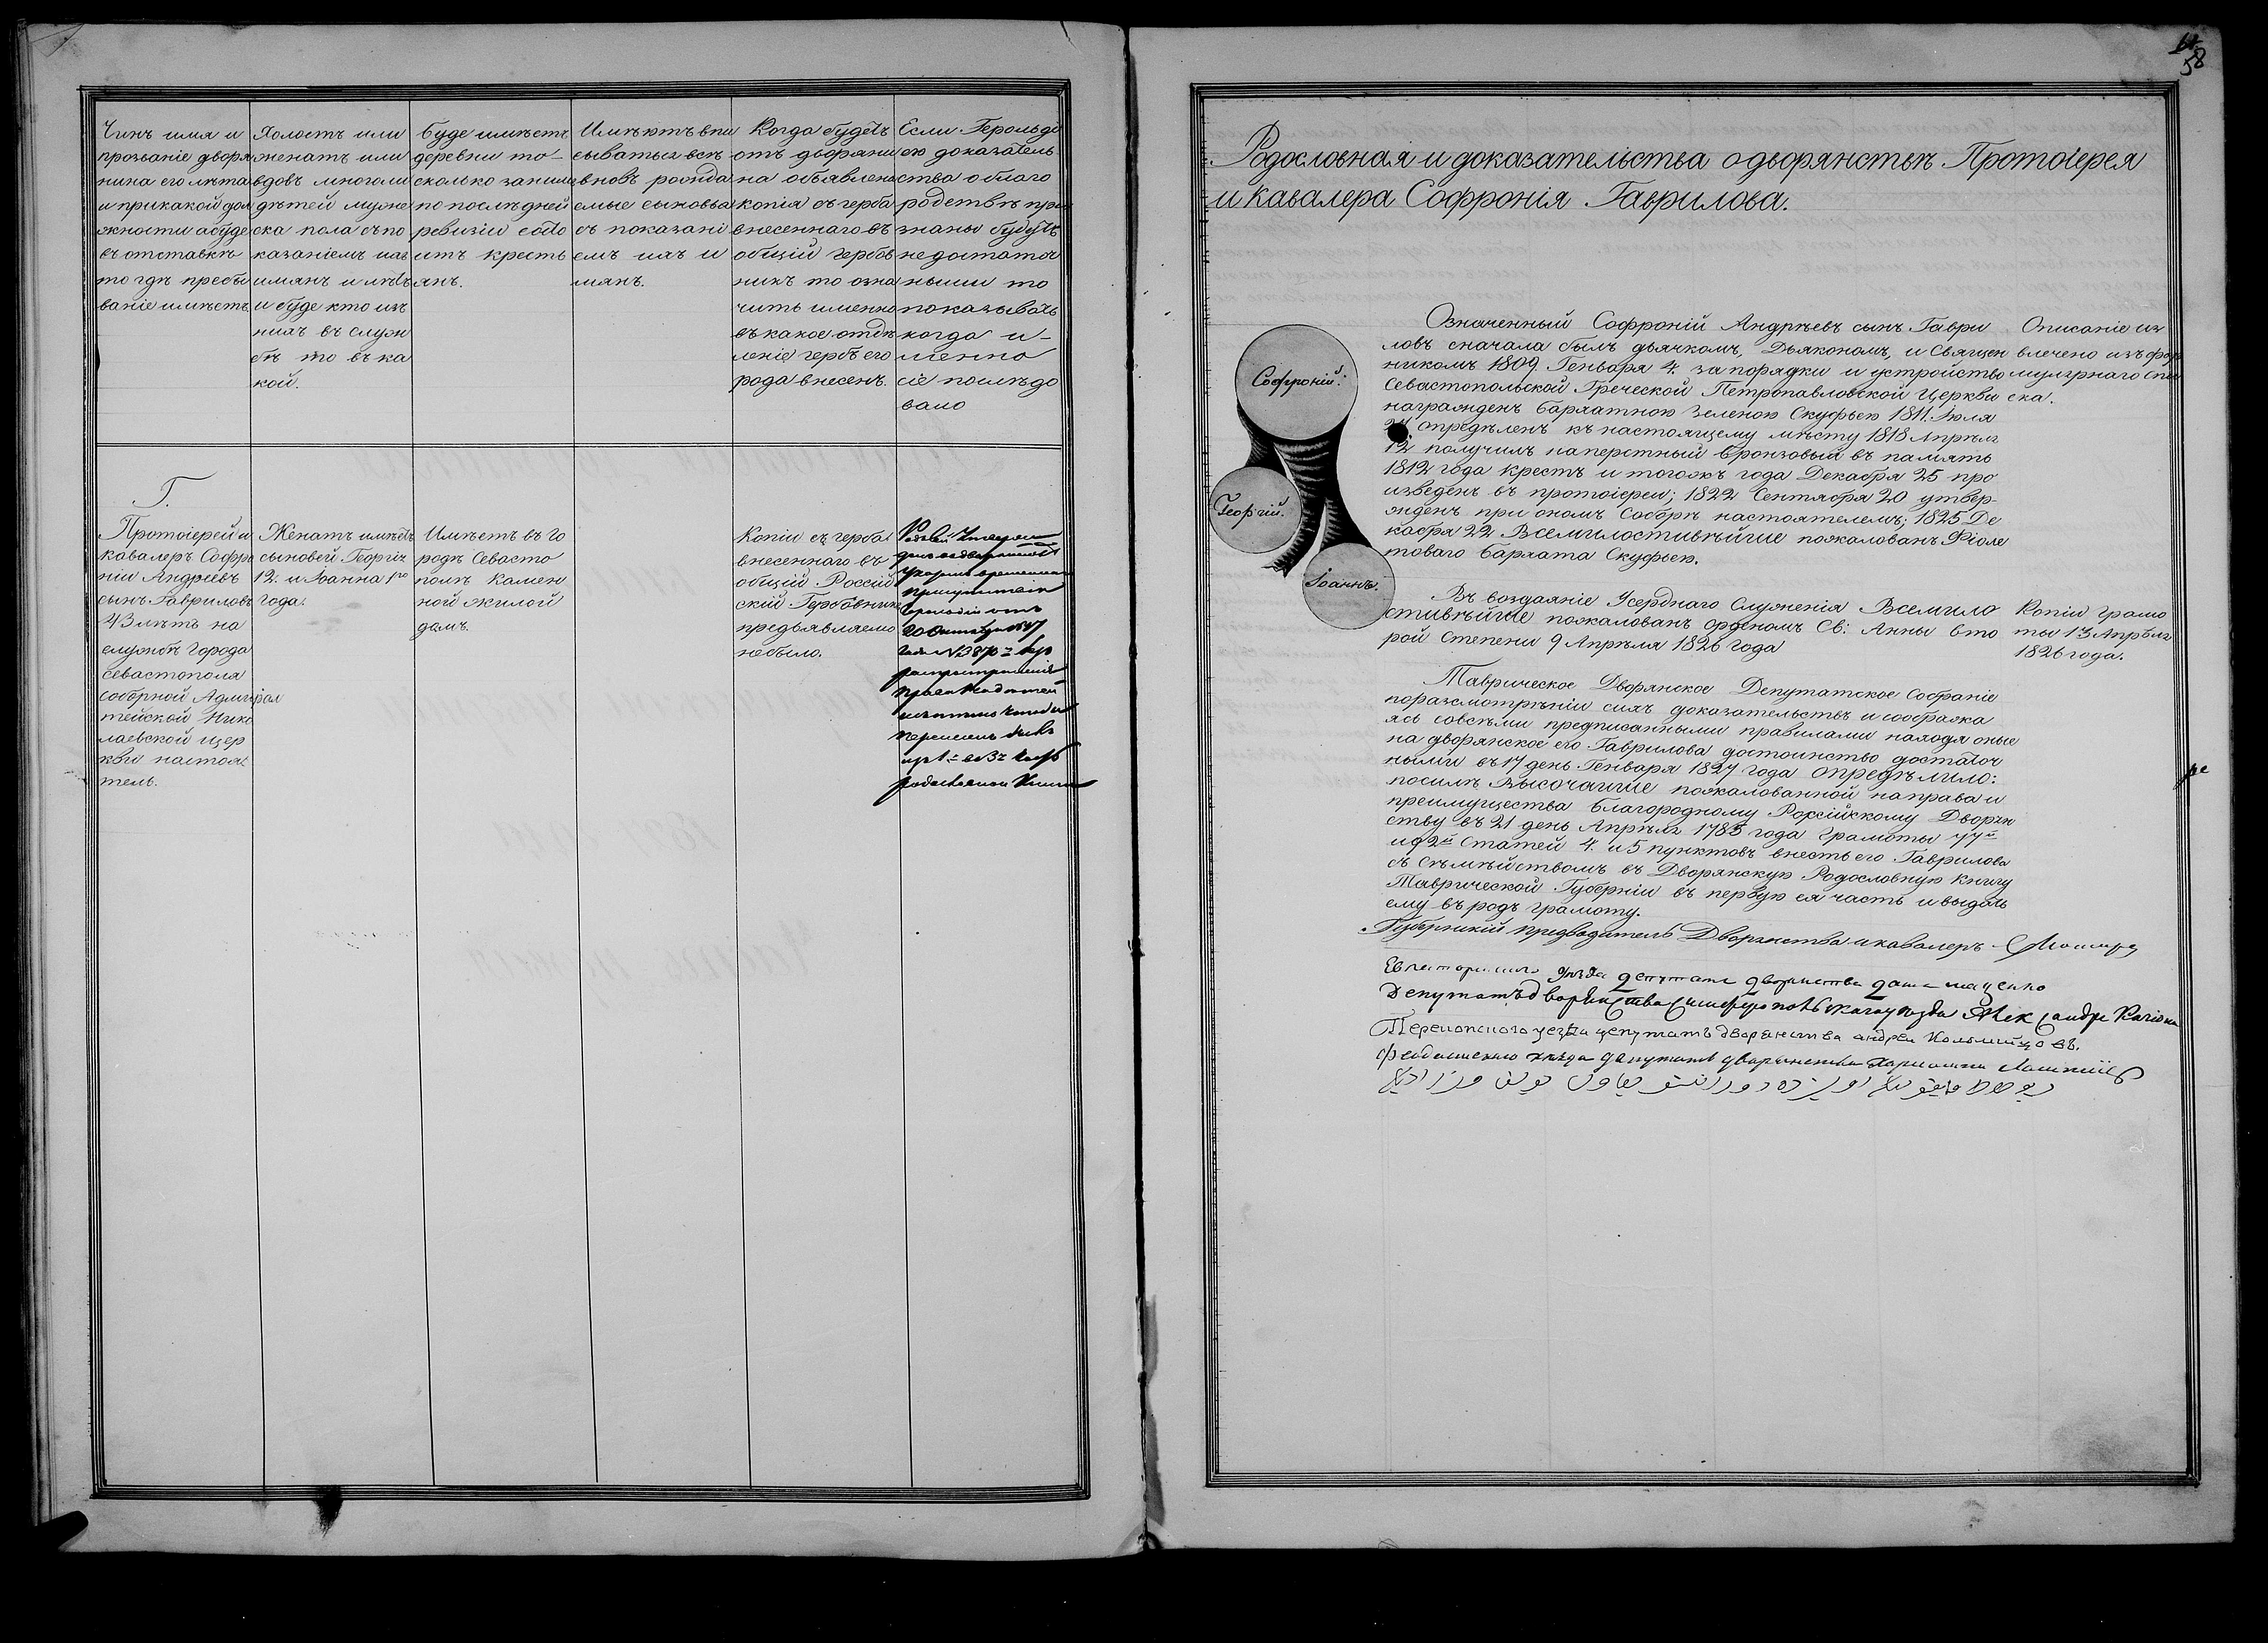 Чинъ имя и
прозваніе дворя
нина его лѣта
и прикакой дол
жности абуде
въ отставкѣ
то гдѣ пребы
ваніе имѣетъ
Холостъ или
женатъ или
вдовъ многоли
дѣтей муже
ска пола съ по
казаніемъ ихъ
имянъ и лѣтъ
и буде кто изъ
нихъ въ служ
бѣ то въ ка
кой.
Буде имѣетъ
деревни то-
сколько заними
по послѣдней
ревизіи состо
итъ кресть
янъ.
Имѣютъ впи
сываться всѣ
вновь рожда
емые сыновья
съ показані
емъ ихъ и
мянъ.
Когда будетъ
отъ дворяни
на объявлена
копія съ герба
внесеннаго въ
общій герббв
никъ то озна
чить именно
въ какое отдѣ
леніе гербъ его
рода внесенъ.
Если Герольді
ею доказатель
ства о благо
родствѣ при
знаны будутъ
недостаточ
ными то
показывать
когда и-
менно
сіе послѣдо
вало
Г.
Протоіерей и
кавалеръ Софро
ній Андреевъ
сынъ Гавриловъ
43 лѣтъ на
службѣ города
Севастополя
соборной Адмирал
тейской Нико
лаевской цер
кви настоя
тель.
Женатъ имѣетъ
сыновей Георгія
12. и Іоанна 1го
года.
Имѣетъ въ го
родѣ Севасто
полѣ камен
ной жилой
домъ.
Копіи съ герба
внесеннаго въ
общій Россій
скій Гербовникъ
предъявляемо
небыло.
временнаго
присутствія
Герольдіи отъ
20 Октября 1847
года №
распространенія
перенесенъ
изъ 1й въ 3ю часть
родословной книги
58
Родословная и доказательства о дворянствѣ Протоіерея
и Кавалера Софронія Гаврилова.
Софроній.
Георгій.
Іоаннъ.
Означенный Софроній Андреевъ сынъ Гаври
ловъ сначала былъ дьячкомъ, Дьякономъ, и Священ
никомъ 1809 Генваря 4. за порядки и устройство
Севастопольской Греческой Петропавловской Церкви
награжденъ бархатною зеленою Скуфьею 1811. Іюля
опредѣленъ къ настоящему мѣсту 1818 Апрѣля
12 получилъ наперстный бронзовый въ память
1812 года крестъ и тогожъ года Декабря 25 про
изведенъ въ протоіереи; 1822 Сентября 20 утвер-
жденъ при ономъ Соборѣ настоятелемъ; 1825 Де
кабря 22 Всемилостивѣйше пожалованъ Фіоле
товаго бархата Скуфьею.
Описаніе из
влечено изъ фор
мулярнаго спи
ска.
Въ воздаяніе Усерднаго Служенія Всемило
стивѣйше пожалованъ орденомъ Св: Анны вто
рой степени 9 Апрѣля 1826 года
Копіи грамо
ты 13 Апрѣля
1826 года.
Таврическое Дворянское Депутатское Собраніе
поразсмотрѣніи сихъ доказательствъ и сообража
ясь совсѣми предписанными правилами находя оные
на дворянское его Гаврилова достоинство достаточ
ными въ 17 день Генваря 1827 года опредѣлило:
посилѣ Высочайше пожалованной на права и
преимущества благородному Россійскому Дворян
ству въ 21 день Апрѣля 1785 года Грамоты 77й
и 92й Статей 4. и 5 пунктовъ внесть его Гаврилова
съ семѣйствомъ въ Дворянскую Родословную Книгу
Таврической Губерніи въ первую ея часть и выдать
ему въ родъ грамоту.
Губернскій предводитель Дворянства и кавалеръ
Евпаторійскаго уѣзда депутатъ дворянства
Депутатъ дворянства Симферопольскаго уѣзда Александръ
Перекопскаго уезда депутатъ дворянства андрей
Феодосійскаго уѣзда депутатъ дворянства